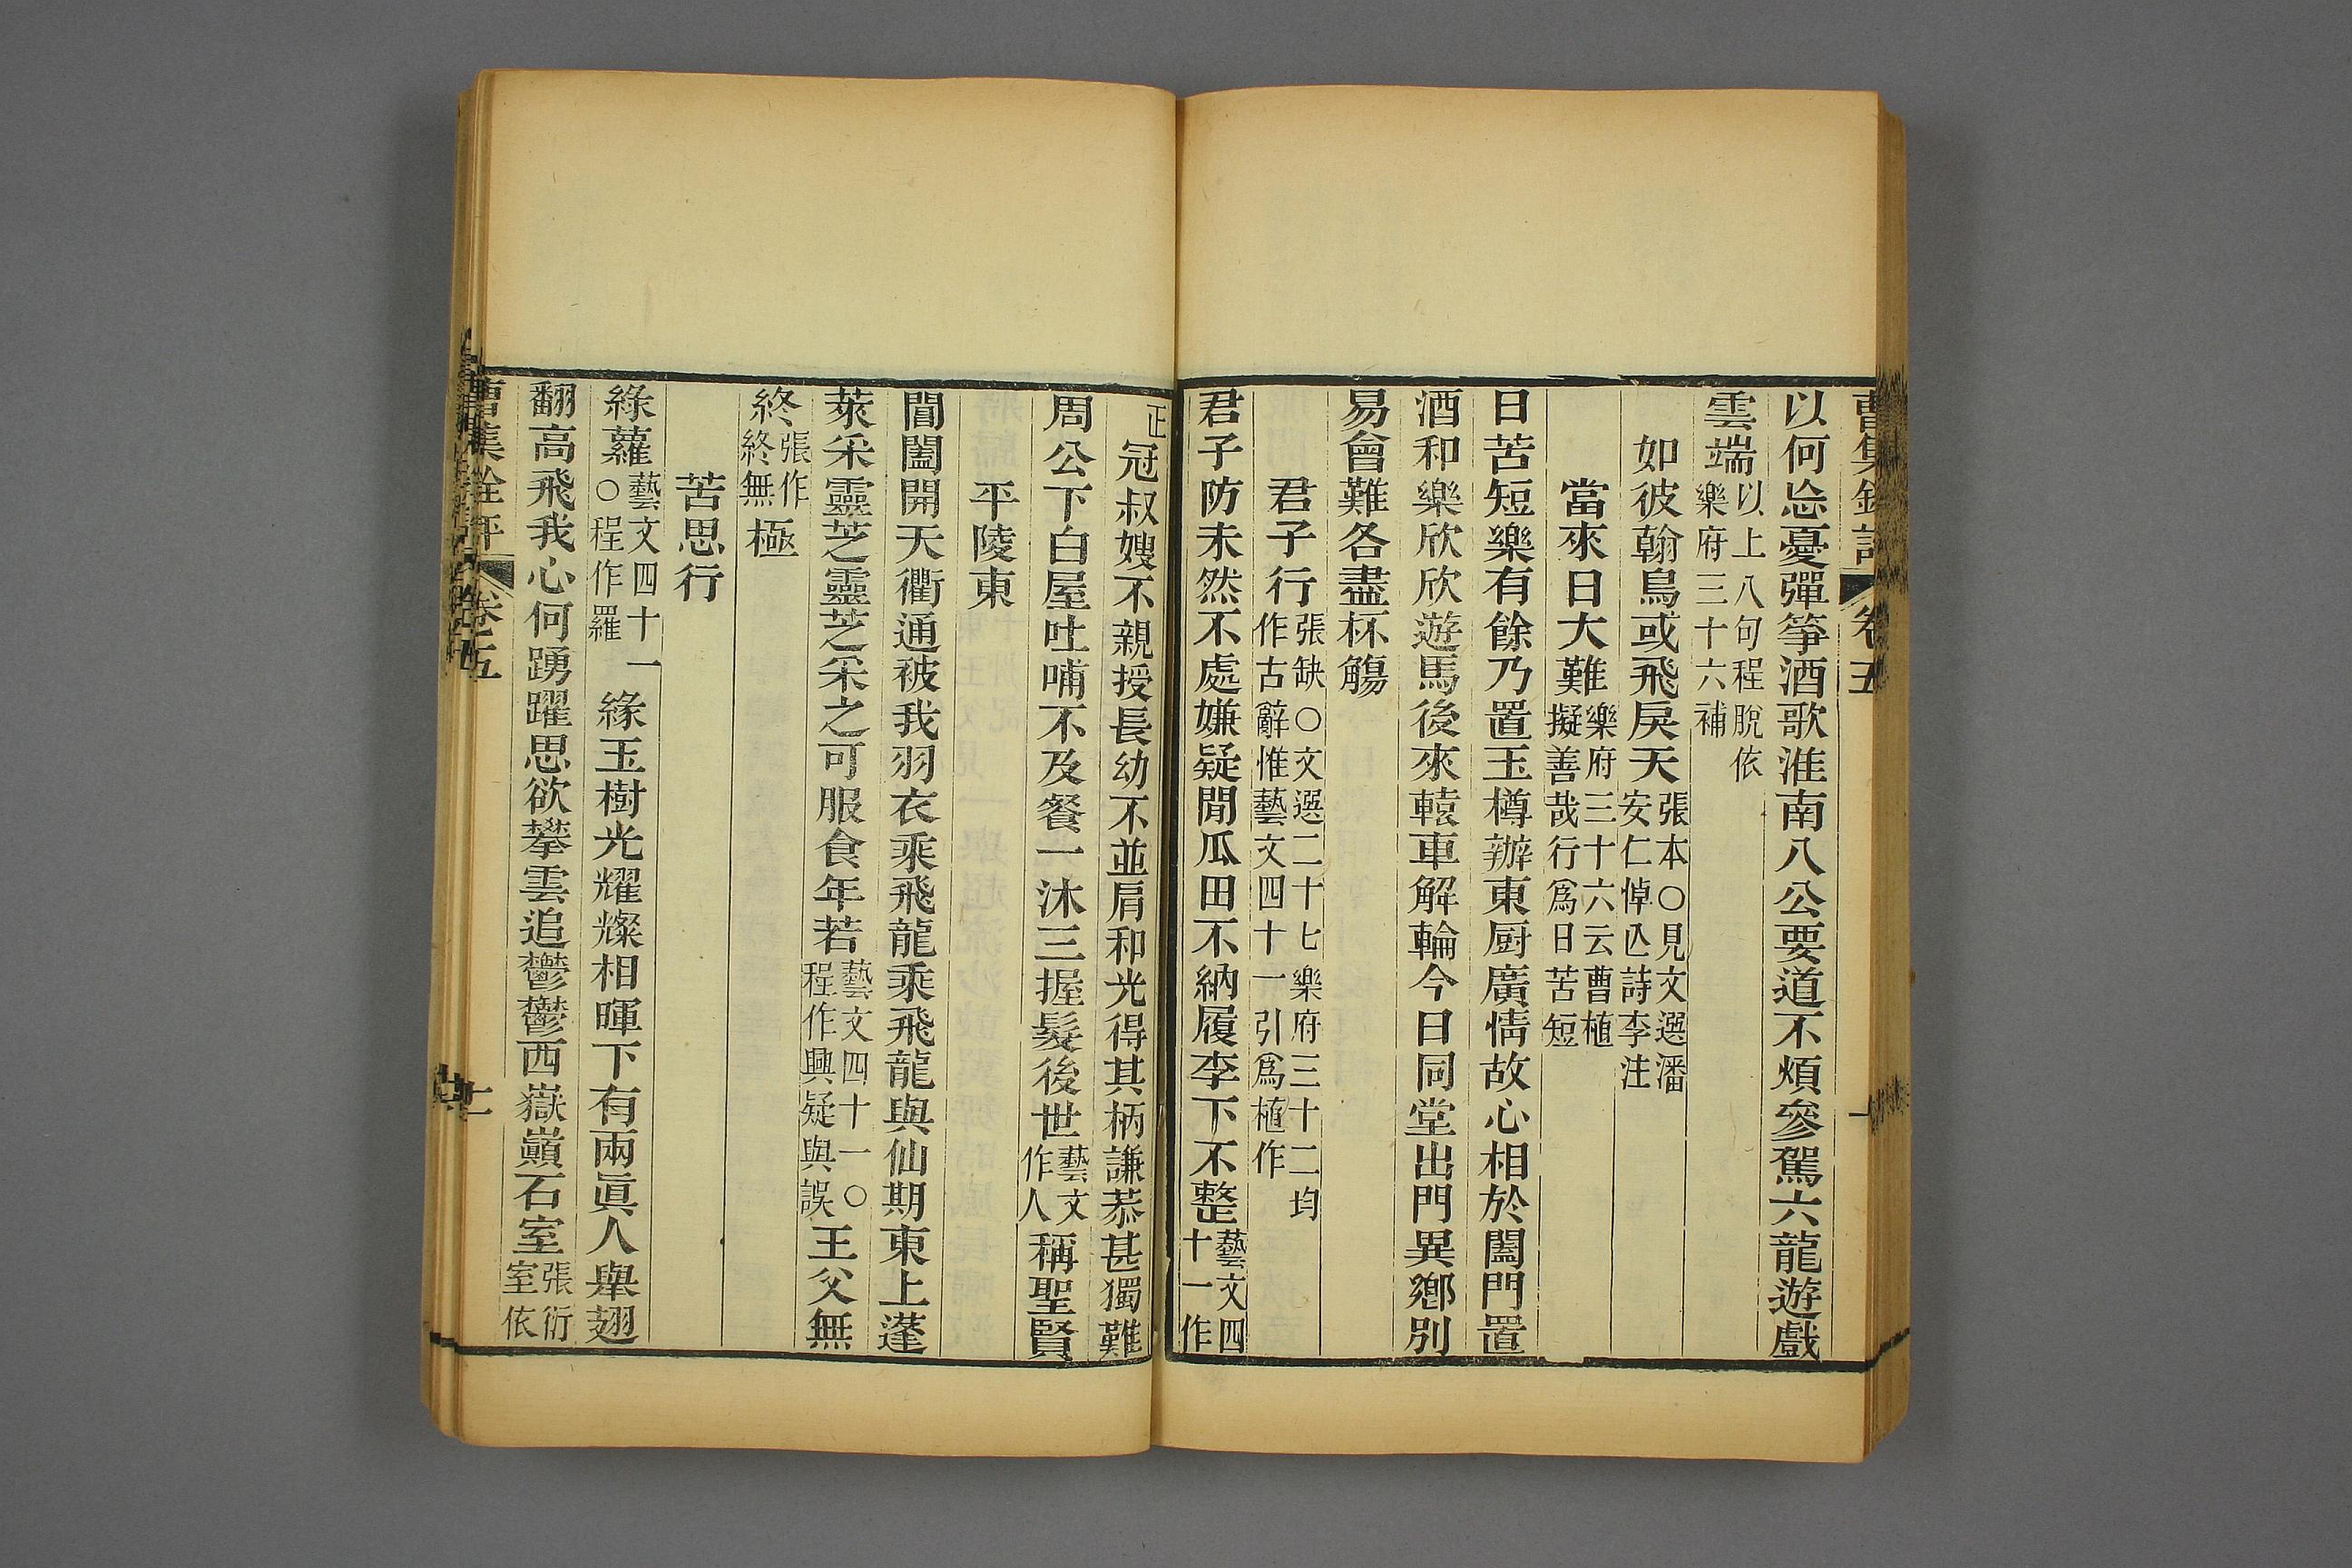 曹集銓評 卷五
以何忘憂彈箏酒歌淮南八公要道不煩參駕六龍遊戲
雲端以上八句程脫依樂府三十六補
如彼翰鳥或飛戾天張本○見文選潘安仁悼亾詩李注
當來日大難樂府三十六云曹植擬善哉行爲日苦短
日苦短樂有餘乃置玉樽辦東廚廣情故心相於闔門置
酒和樂欣欣遊馬後來轅車解輪今日同堂出門異鄉別
易會難各盡杯觴
君子行張缺○文選二十七樂府三十二均作古辭惟藝文四十一引爲植作
君子防未然不處嫌疑閒瓜田不納履李下不整藝文四十一作
正冠叔嫂不親授長幼不並肩和光得其柄謙恭甚獨難
周公下白屋吐哺不及餐一沐三握髮後世藝文作人稱聖賢
平陵東
閶闔開天衢通被我羽衣乘飛龍乘飛龍與仙期東上蓬
萊采靈芝靈芝采之可服食年若藝文四十一○程作興疑與誤王父無
終張作終無極
苦思行
綠蘿藝文四十一○程作羅緣玉樹光耀燦相暉下有兩眞人舉翅
翻高飛我心何踴躍思欲攀雲追鬱鬱西嶽巔石室張衍室依
曹集銓評 卷五